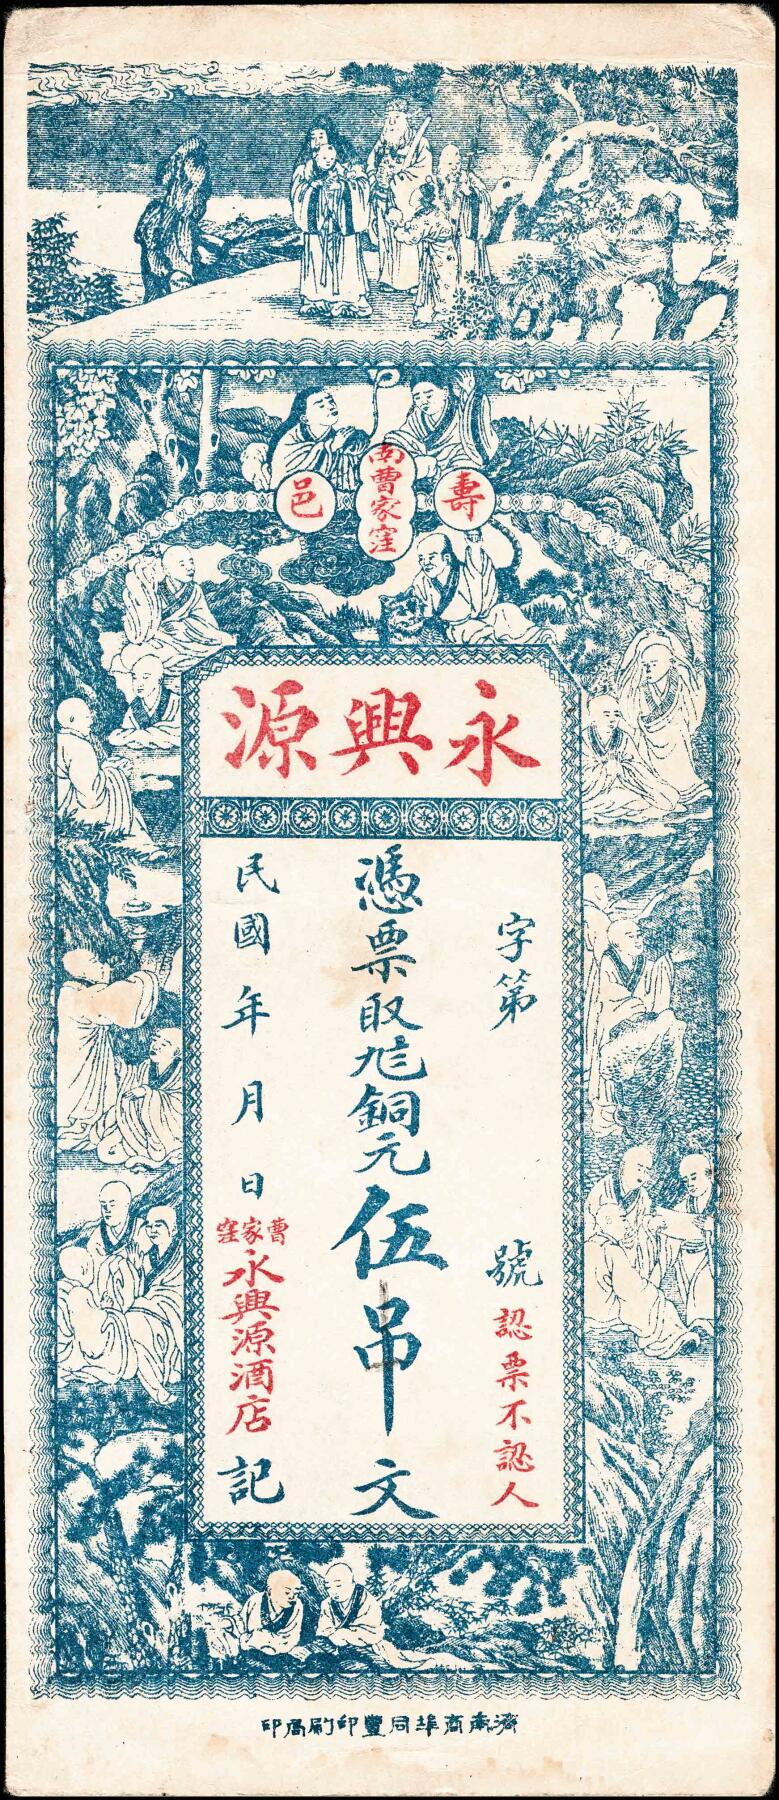 壽
南曹家窪
邑
永興源
字第 號 認票不認人
憑票取 銅元伍吊文
民國 年 月 日 曹家窪 永興源酒店 記
濟南商埠同豐印刷局印